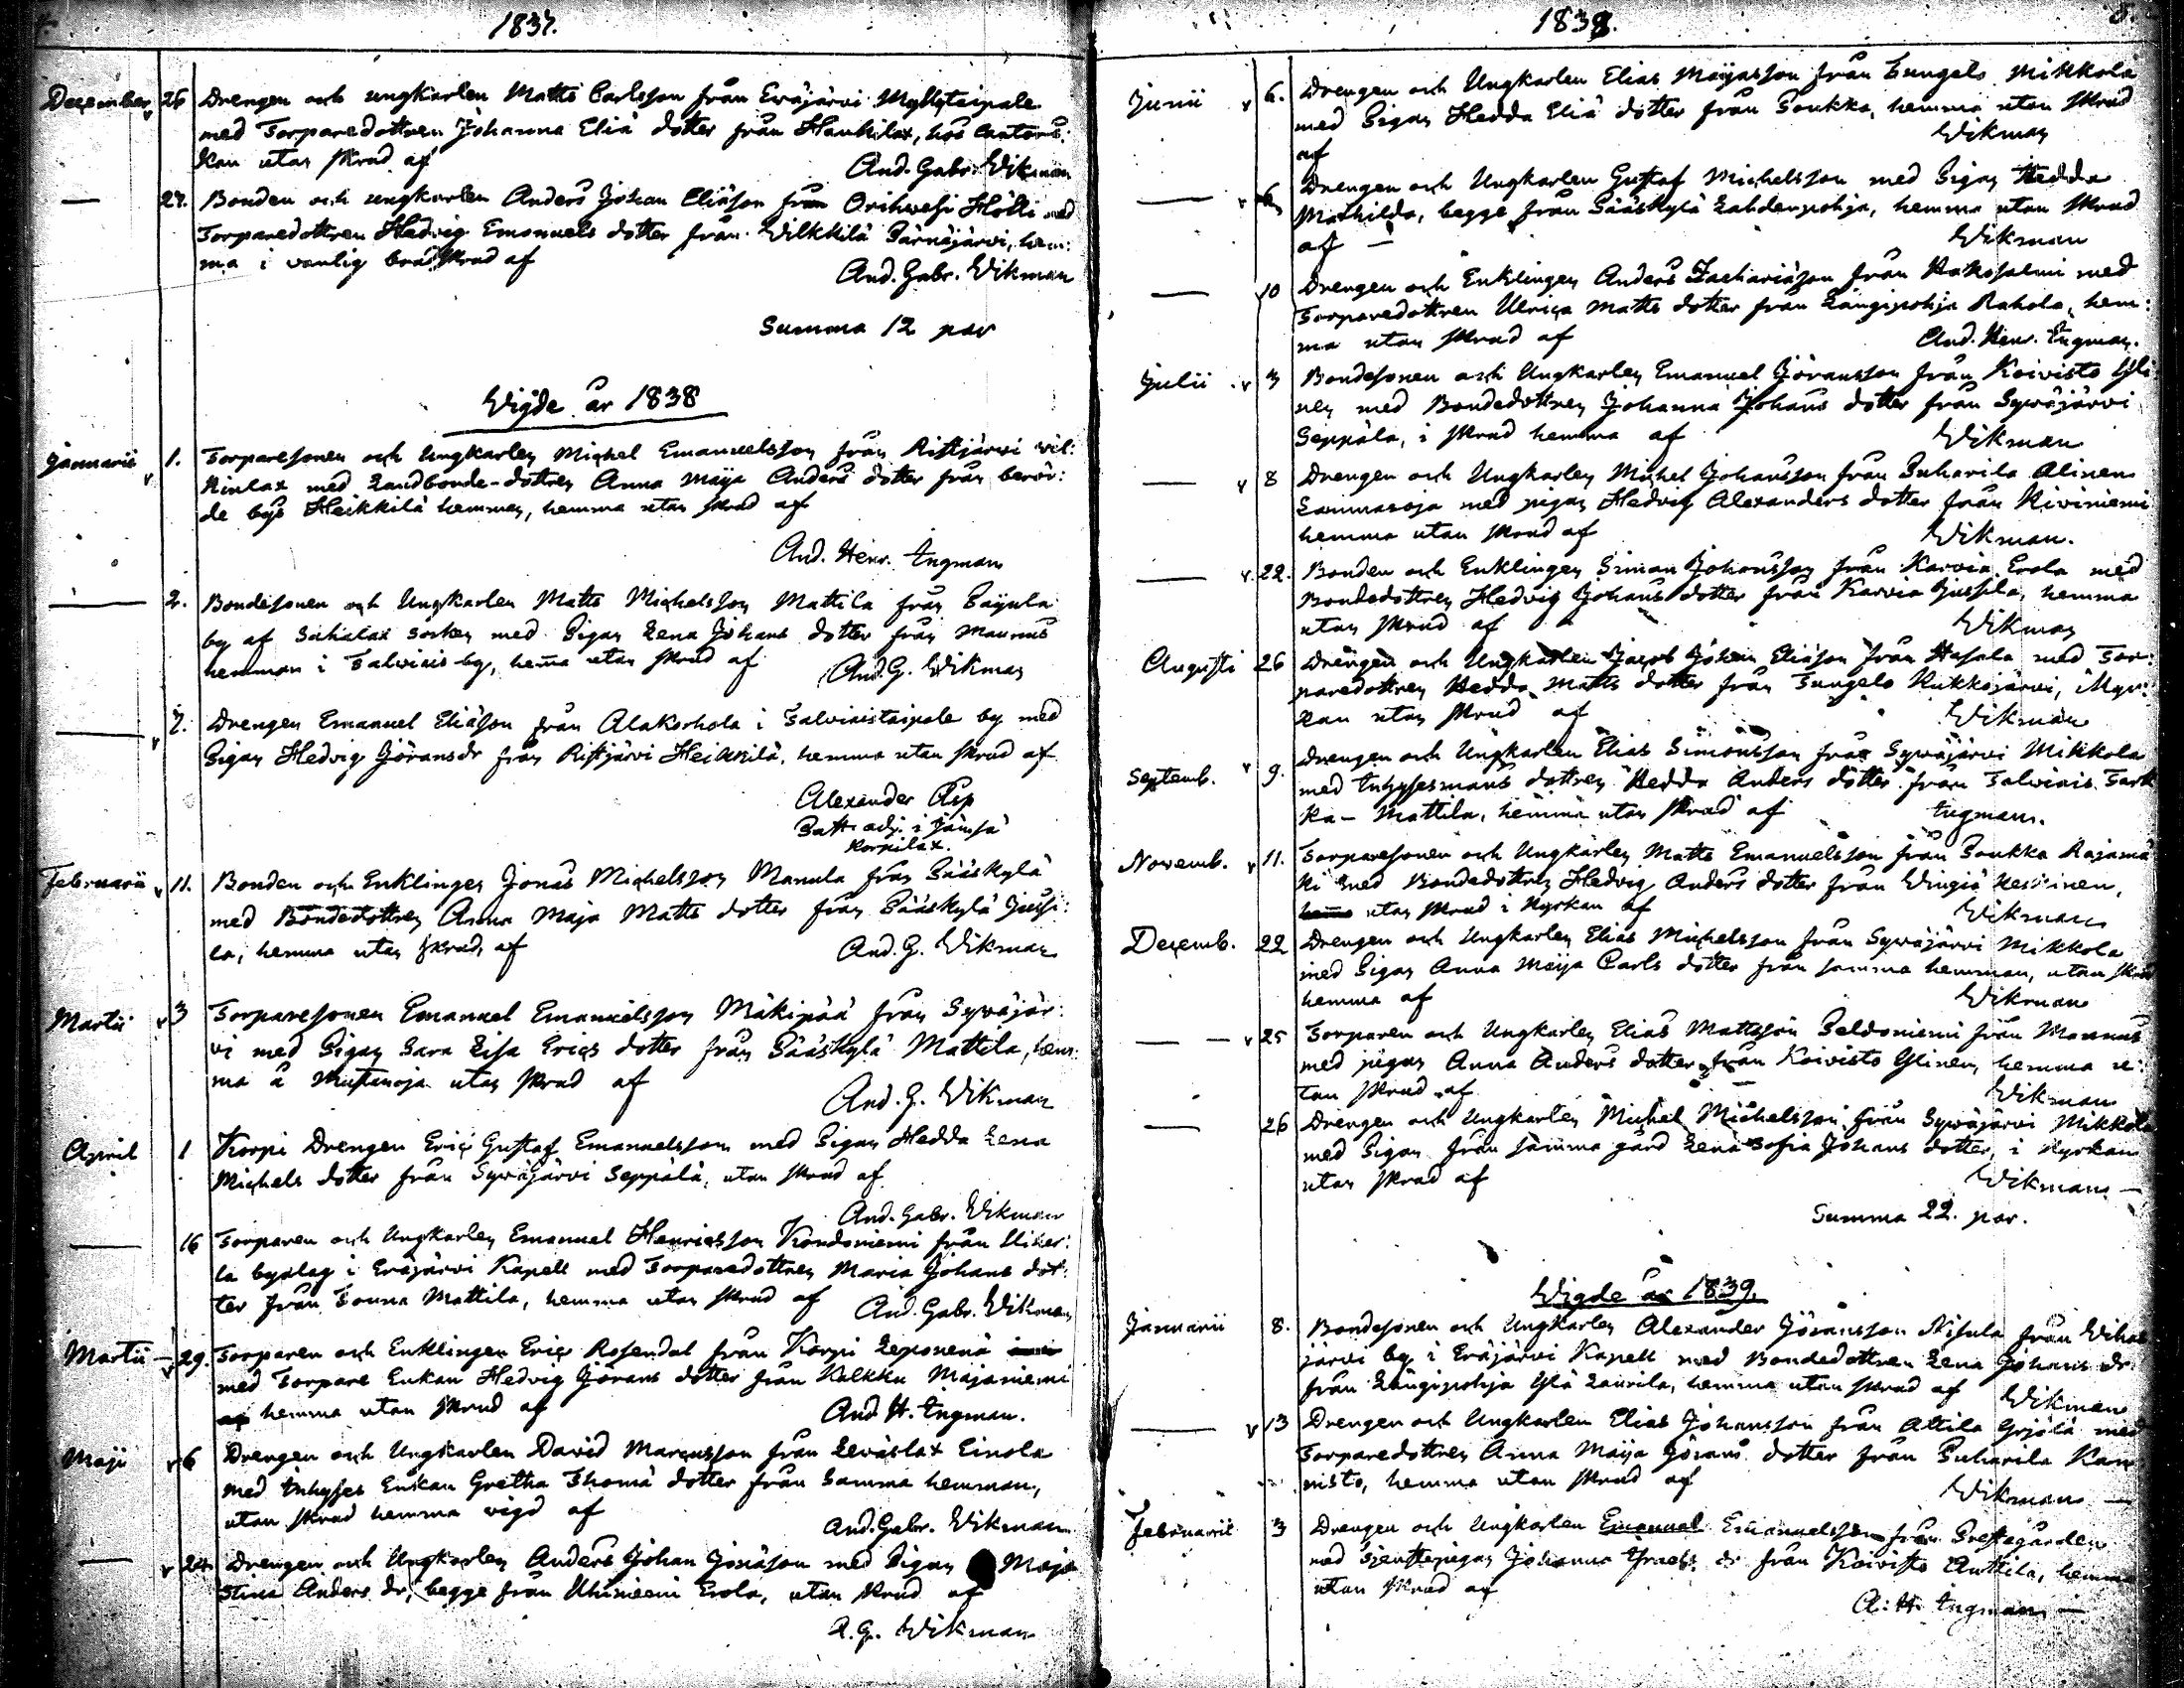 1837.
December 26 Drengen och ungkarlen Matts Carlsson från Eräjärvi Myllyteipale
med Torparedottren Johanna Eliä dotter från Hankilax, hos Cantors:
kan utan skrud af And. Gabr. Wikman
— 27. Bonden och ungkarlen Anders Johan Eliäson från Orihwesi Hölli med
Torparedottren Hedvig Emanuels dotter från Wilkkilä Särnäjärvi, hem:
ma i vanlig brudskrud af And. Gabr. Wikman
Summa 12 par
Wigde år 1838
Januarii v 1. Torparesonen och Ungkarlen Michel Emanuelsson från Ristjärvi wil:
kinlax med Landbonde-dottren Anna Maja Anders dotter från berör:
de bys Heikkilä hemman, hemma utan skrud af
And. Henr. Ingman
— 2. Bondesonen och Ungkarlen Matts Michelsson Mattila från Päyula
by af Sahalax socken med Pigan Lena Johans dotter från Maunus
hemman i Talviais by, hem̄a utan skrud af And. G. Wikman
— v 7. Drengen Emanuel Eliäson från Alakorhola i Salviaistaipale by med
Pigan Hedvig Göransdr från Ristjärvi Heickkilä, hemma utan skrud af
Alexander Asp
Past. adj. i Jämsä
Korpilax.
Februarii v 11. Bonden och Enklingen Jonas Michelsson Manula från Sääskylä
med Bondedottren Anna Maja Matts dotter från Sääskylä Jussi:
la, hemma utan skrud, af And. G. Wikman
Martii v 3 Torparesonen Emanuel Emanuelsson Mäkipää från Sywäjär:
vi med Pigan Sara Lisa Erics dotter från Sääskylä Mattila, hem:
ma å Mustanoja utan skrud af
And. G. Wikman
April 1 Korpi Drengen Eric Gustaf Emanuelsson med Pigan Hedda Lena
Michels dotter från Sywäjärvi Seppälä, utan skrud af
And. Gabr. Wikman
— 16 Torparen och Ungkarlen Emanuel Henricsson Kondoniemi från
la byalag i Eräjärvi Kapell med Torparedottren Maria Johans dot:
ter från Touna Mattila, hemma utan skrud af And. Gabr. Wikman
Martii — v 29. Torparen och Enklingen Eric Rosendal från Korpi Leponenä
med Torpare Enkan Hedvig Görans dotter från Kalkku Majaniemi
hemma utan skrud af And. H. Ingman.
Maji v 6 Drengen och Ungkarlen David Marcusson från Leväslax Einola
med Inhyses Enkan Gretha Thomä dotter från Samma hemman,
utan skrud hemma vigd af And. Gabr. Wikman
— v 24 Drengen och Ungkarlen Anders Johan Josäson med Pigan Maja
Stina Anders dr, begge från Uhiniemi Erola, utan skrud af
A. G. Wikman
1838.
Junii v 6. Drengen och Ungkarlen Elias Majasson från Tungelo Mikkola
med Pigan Hedda Eliä dotter från Poukka, hemma utan skrud
af Wikman
— v Drengen och Ungkarlen Gustaf Michelsson med Pigan Hedda
Mathilda, begge från Sääskylä Lahdenpohja, hemma utan skrud
af — Wikman
— v 10 Drengen och Enklingen Anders Zachariäson från Hakosalmi med
Torparedottren Ulrica Matts dotter från Längipohja Rahola, hem:
ma utan skrud af And. Henr. Ingman.
Julii v 3 Bondesonen och Ungkarlen Emanuel Göransson från Koivisto Yli
nen med Bondedottren Johanna Johans dotter från Sywäjärvi
Seppäla, i skrud hemma af Wikman
— v 8 Drengen och Ungkarlen Michel Johansson från Puharila Alinen
Lammasoja med pigan Hedvig Alexanders dotter från Kiviniemi
hemma utan skrud af Wikman.
— v. 22. Bonden och Enklingen Simon Johansson från Karvia Erola med
Bondedottren Hedvig Johans dotter från Karvia Jussila, hemma
utan skrud af Wikman
Augusti 26 Drengen och Ungkarlen Jacob Johan Eliäson från Hasala med Tor:
paredottren Hedda Matts dotter från Tungelo Kukkojärvi, i Kyr:
kan utan skrud af Wikman
Septemb. v 9. Drengen och Ungkarlen Elias Simonsson från Sywäjärvi Mikkola
med Inhysesmans dottren Hedda Anders dotter från Talviais Sark
ka-Mattila, hemma utan skrud af Ingman.
Novemb. v 11. Torparesonen och Ungkarlen Matts Emanuelsson från Poukka Rajamä
ki med Bondedottren Hedvig Anders dotter från Wingiä Keskinen,
utan skrud i Kyrkan af Wikman
Decemb. 22 Drengen och Ungkarlen Elias Michelsson från Sywäjärvi Mikkola
med Pigan Anna Maija Carls dotter från samma hemman, utan skrud
hemma af Wikman
— v 25 Torparen och Ungkarlen Elias Mattsson Peldoniemi från Maunus
med pigan Anna Anders dotter från Koivisto Ylinen, hemma u:
tan skrud af Wikman
— 26 Drengen och Ungkarlen Michel Michelsson från Sywäjärvi Mikkola
med Pigan från samma gård Lena Sofia Johans dotter, i Kyrkan
utan skrud af Wikman —
Summa 22. par.
Wigde år 1839.
Januarii 8. Bondesonen och Ungkarlen Alexander Göransson Nisula från Wihas
järvi by i Eräjärvi Kapell med Bondedottren Lena Johans dr
från Längipohja Ylä Laurila, hemma utan skrud af Wikman
— v 13 Drengen och Ungkarlen Elias Johansson från Attila Yrjölä med
Torparedottren Anna Maija Görans dotter från Puharila Kan
nisto, hemma utan skrud af Wikman —
Februarii 3 Drengen och Ungkarlen Emanuel Emanuelsson från Prestegården
med tjenstepigan Johanna Israels dr från Koivisto Anttila, hemma
utan skrud af
A: H. Ingman —